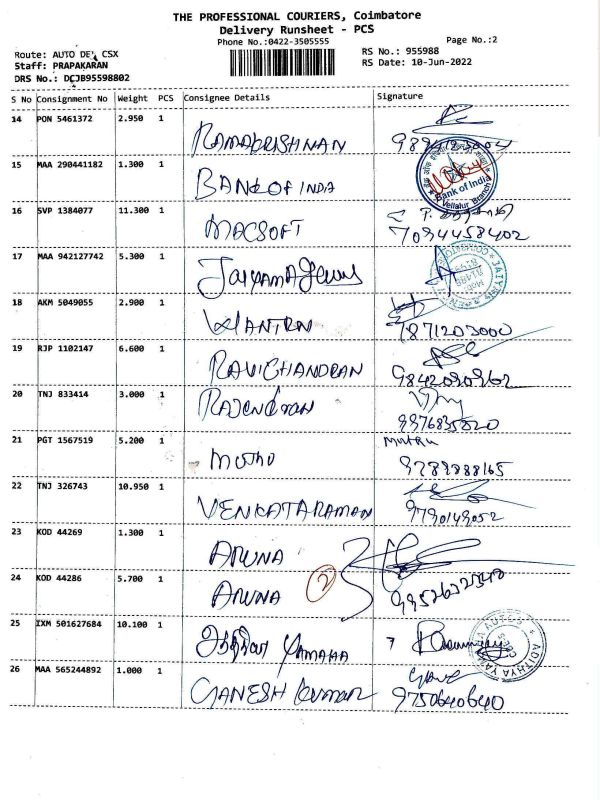 THE PROFESSIONAL COURIERS, Coimbatore
Delivery Runsheet - PCS
Phone No.:0422-3505555
Page No.:2
Route: AUTO DEL CSX
RS No.: 955988
Staff: PRAPAKARAN
RS Date: 10-Jun-2022
DRS No.: DCJB95598802
S No Consignment No Weight PCS Consignee Details Signature
14 PON 5461372 2.950 1
RAMAKRISHNAN
15 MAA 290441182 1.300 1
BANK OF INDIA
Bank of India
Vellalur Branch
16 SVP 1384077 11.300 1
MACSOFT
7094458402
17 MAA 942127742 5.300 1
18 AKM 5049055 2.900 1
9871203000
19 RJP 1102147 6.600 1
RAVICHANDRAN
20 TNJ 833414 3.000 1
RAJENDRAN
21 PGT 1567519 5.200 1
MUTHU
Muthu
9789888165
22 TNJ 326743 10.950 1
VENKATARAMAN
9790149052
23 KOD 44269 1.300 1
ARUNA
24 KOD 44286 5.700 1
ARUNA 2
25 IXM 501627684 10.100 1
YAMAHA
26 MAA 565244892 1.000 1
GANESH KUMAR
9750640640